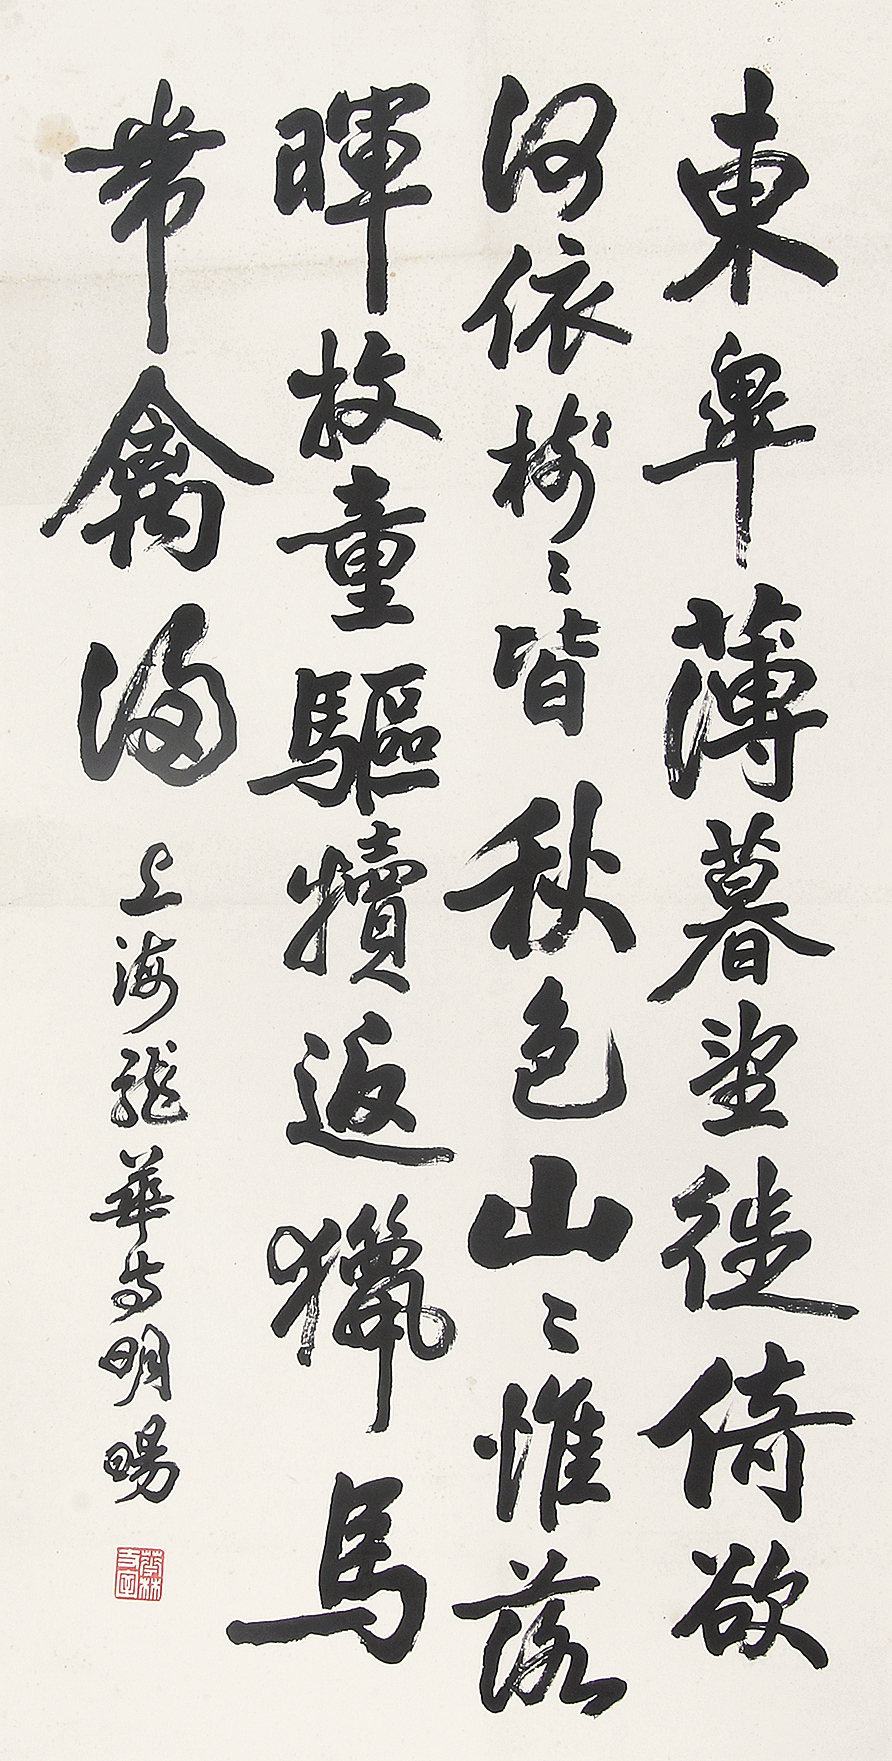 東皋薄暮望徙倚欲
何依樹〻皆秋色山〻惟落
暉牧童驅犢返獵馬
帶禽歸 上海龍華寺明暘